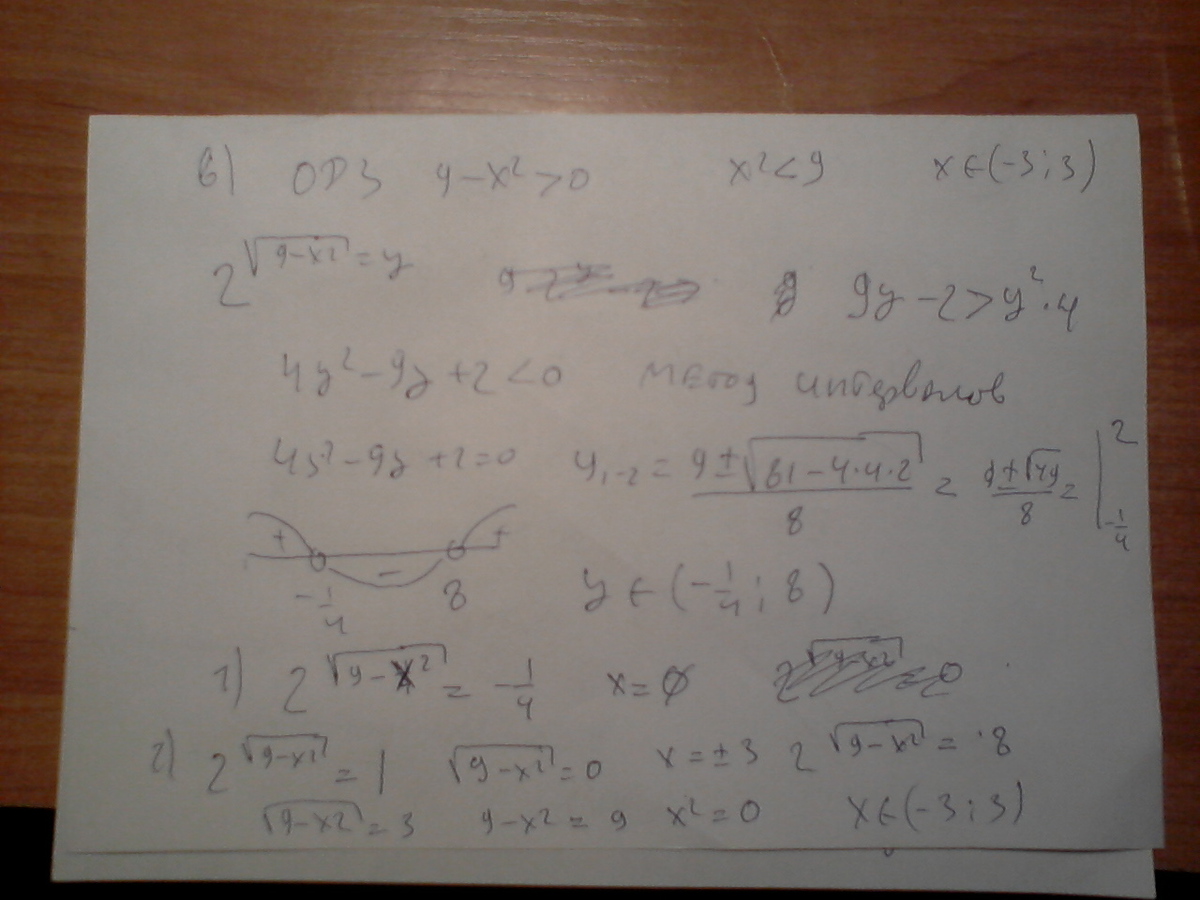 в) ОДЗ 9-x²>0 x²<9 x∈(-3;3)
2^√(9-x²) = y 9y-2>y²·4
4y²-9y+2<0 метод интервалов
4y²-9y+2=0 y₁,₋₂ = (9±√(81-4·4·2))/8 = (9±√49)/8 = | 2
-1/4
+ - +
-1/4 8 y∈(-1/4;8)
1) 2^√(9-x²) = -1/4 x=∅
2) 2^√(9-x²) = 1 √(9-x²)=0 x=±3 2^√(9-x²) = 8
√(9-x²)=3 9-x²=9 x²=0 x∈(-3;3)